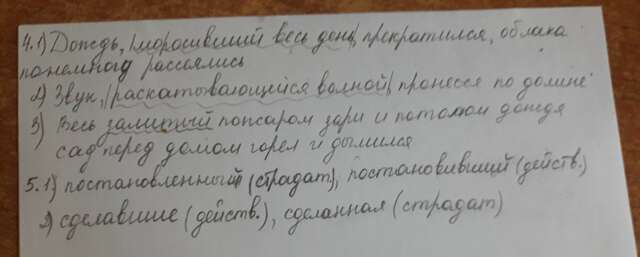 4.1) Дождь, моросивший весь день, прекратился, облака
понемногу рассеялись
2) Звук, раскатывающейся волной, пронёсся по долине
3) Весь залитый пожаром зари и потопом дождя
сад перед домом горел и дымился
5.1) постановленный (страдат), постановивший (действ.)
2) сделавшие (действ.), сделанная (страдат)